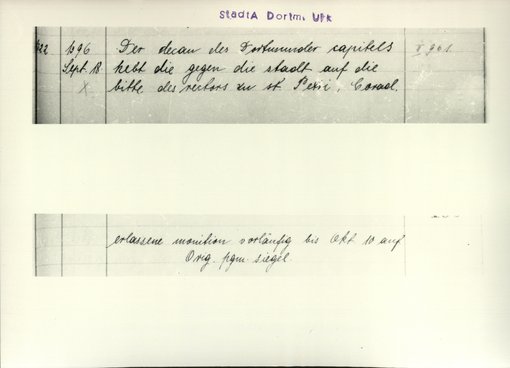 StadtA Dortm. Urk
22 1396 Der decan des Dortmunder capitels V 961
Sept. 18 hebt die gegen die stadt auf die
X bitte des rectors zu st. Petri, Conrad.
erlassene monition vorläufig bis Okt 10 auf
Orig. pgm. siegel.